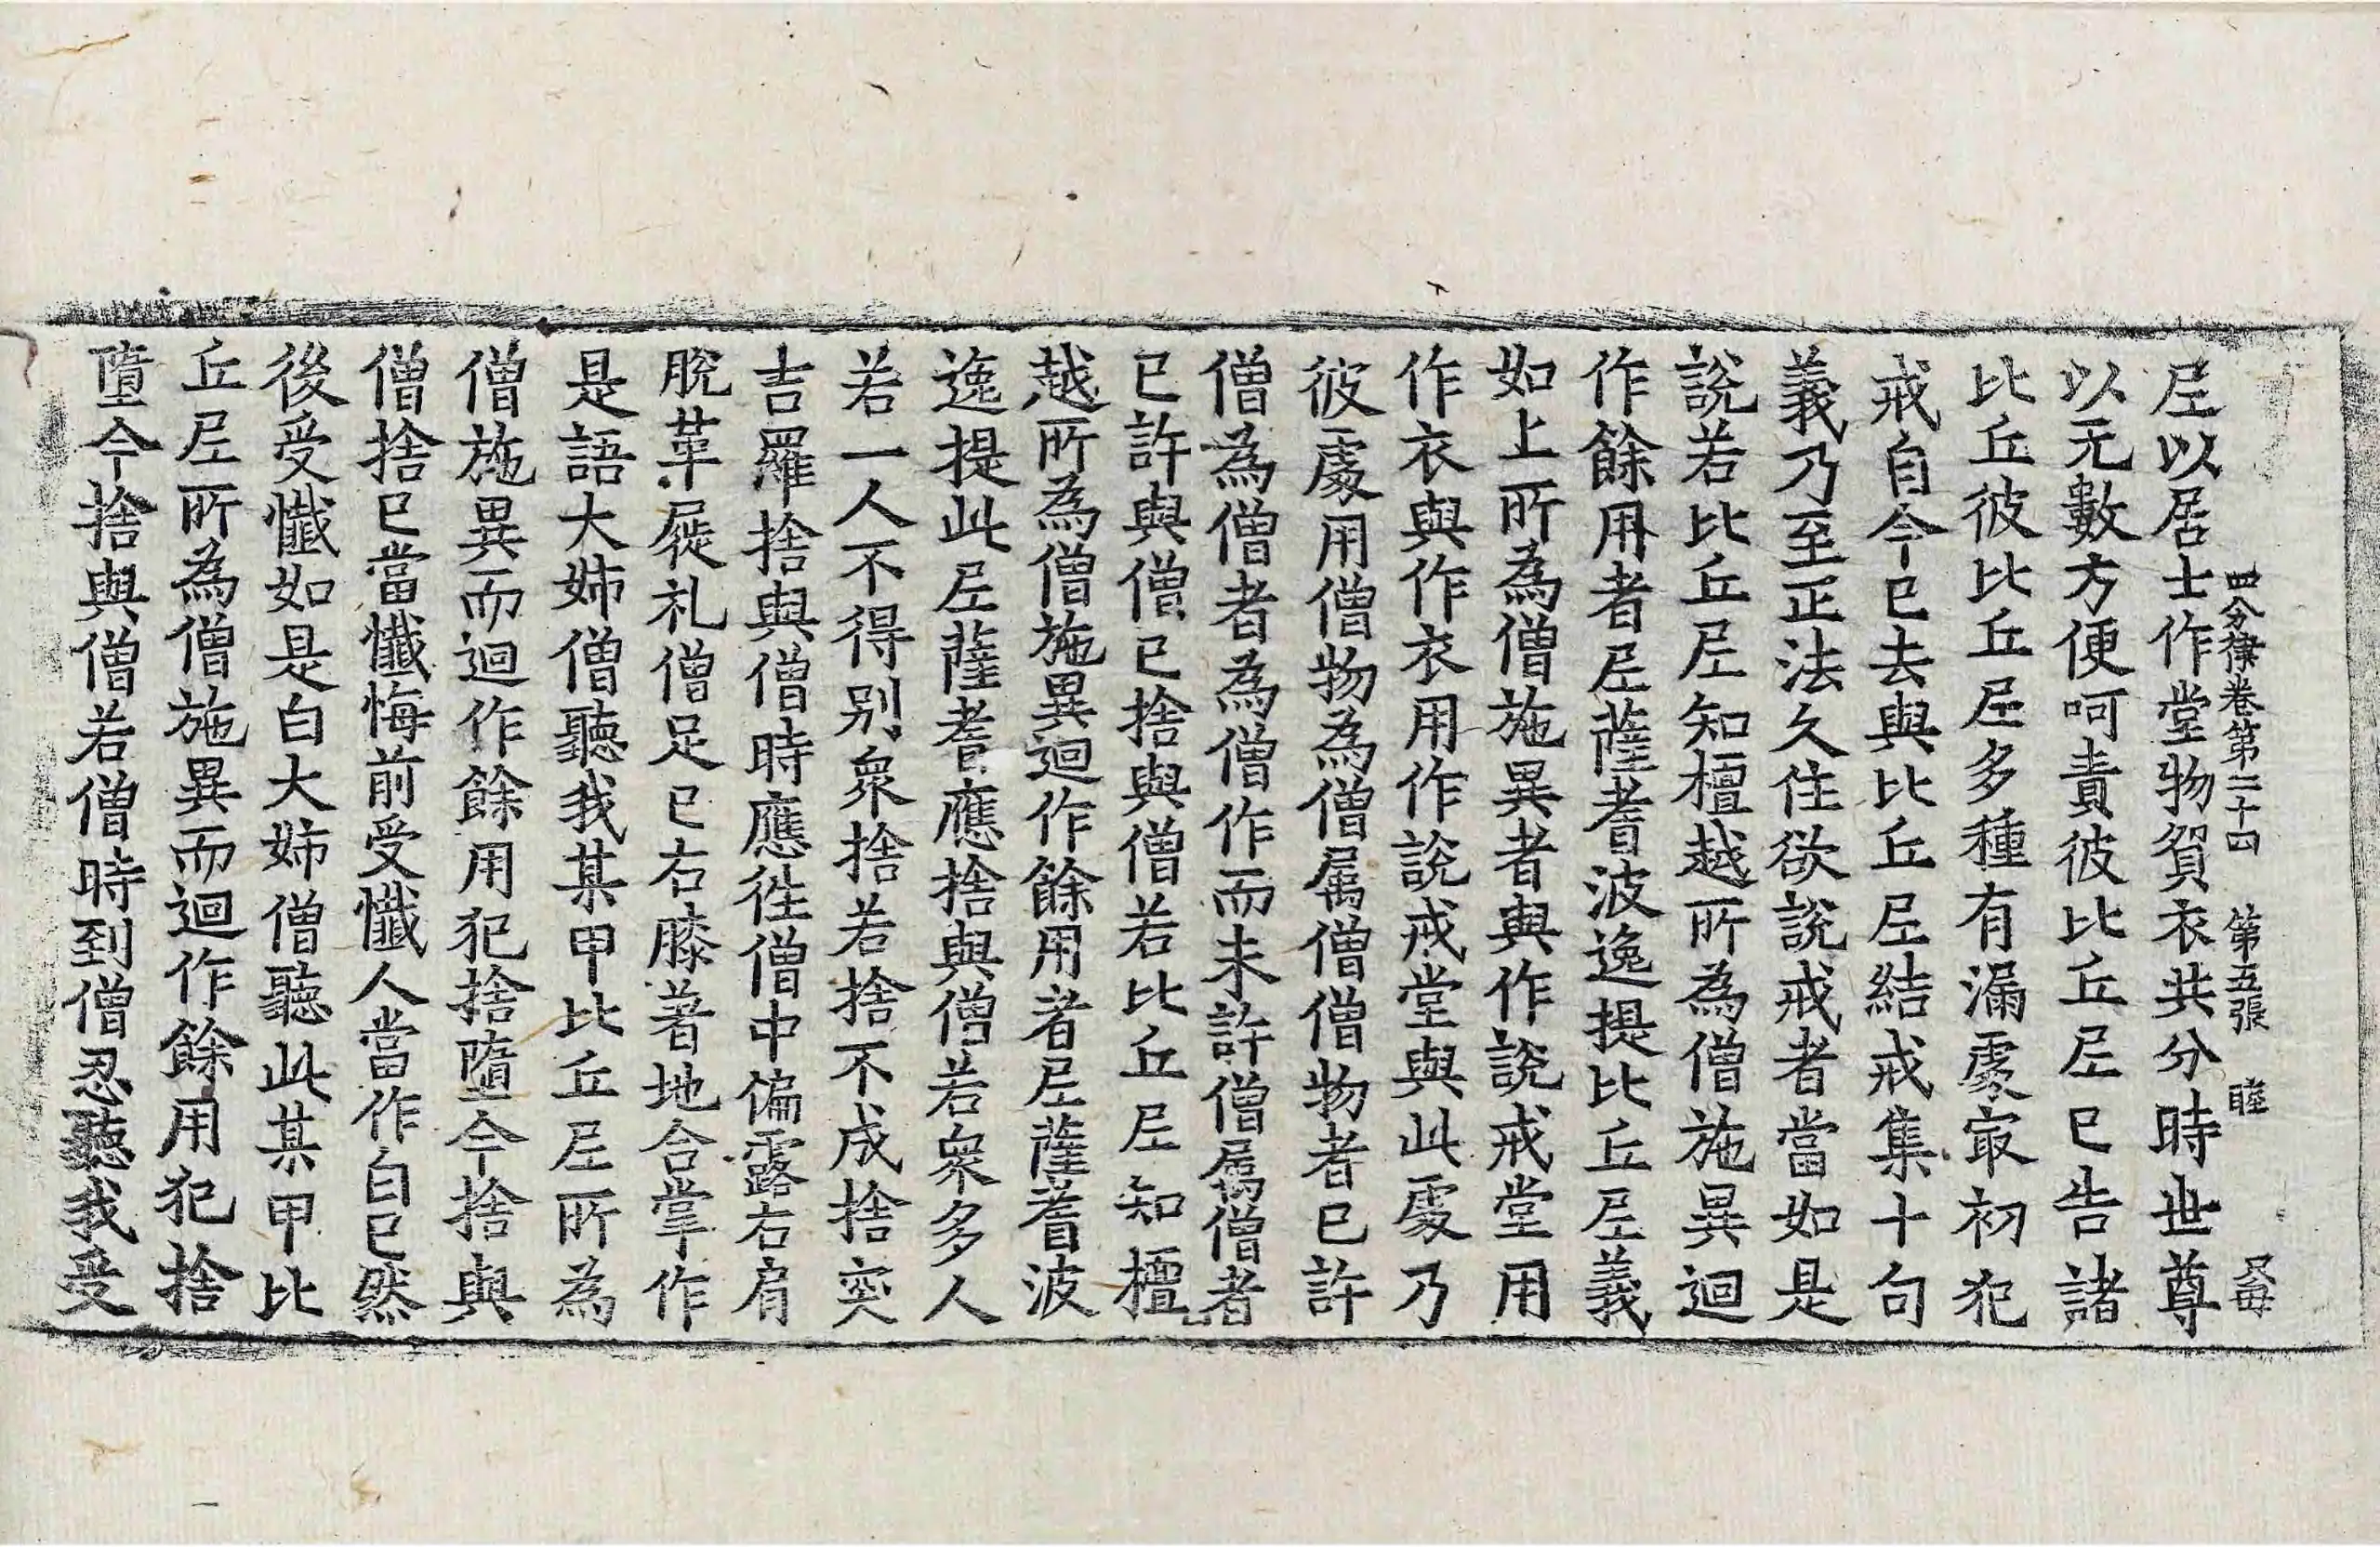 四分律卷第二十四　第五張　睦
尼以居士作堂物貿衣共分時世尊
以无數方便呵責彼比丘尼已告諸
比丘彼比丘尼多種有漏處㝡初犯
戒自今已去與比丘尼結戒集十句
義乃至正法久住欲說戒者當如是
說若比丘尼知檀越所為僧施異迴
作餘用者尼薩耆波逸提比丘尼義
如上所為僧施異者與作說戒堂用
作衣與作衣用作說戒堂與此處乃
彼處用僧物為僧属僧僧物者已許
僧為僧者為僧作而未許僧属僧者
已許與僧已捨與僧若比丘尼知檀
越所為僧施異迴作餘用者尼薩耆波
逸提此尼薩耆應捨與僧若衆多人
若一人不得别衆捨若捨不成捨突
吉羅捨與僧時應徃僧中偏露右肩
脫革屣礼僧足已右膝著地合掌作
是語大姊僧聽我某甲比丘尼所為
僧施異而迴作餘用犯捨墮今捨與
僧捨已當懺悔前受懺人當作白已然
後受懺如是白大姊僧聽此某甲比
丘尼所為僧施異而迴作餘用犯捨
墮今捨與僧若僧時到僧忍聽我受